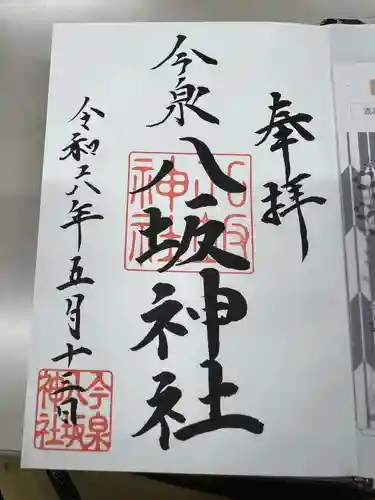 奉拝
今泉
八坂神社
令和六年五月十三日
八坂神社
今泉八坂神社